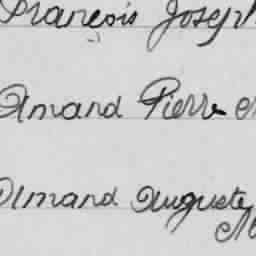 François Joseph
Amand Pierre
Amand Auguste